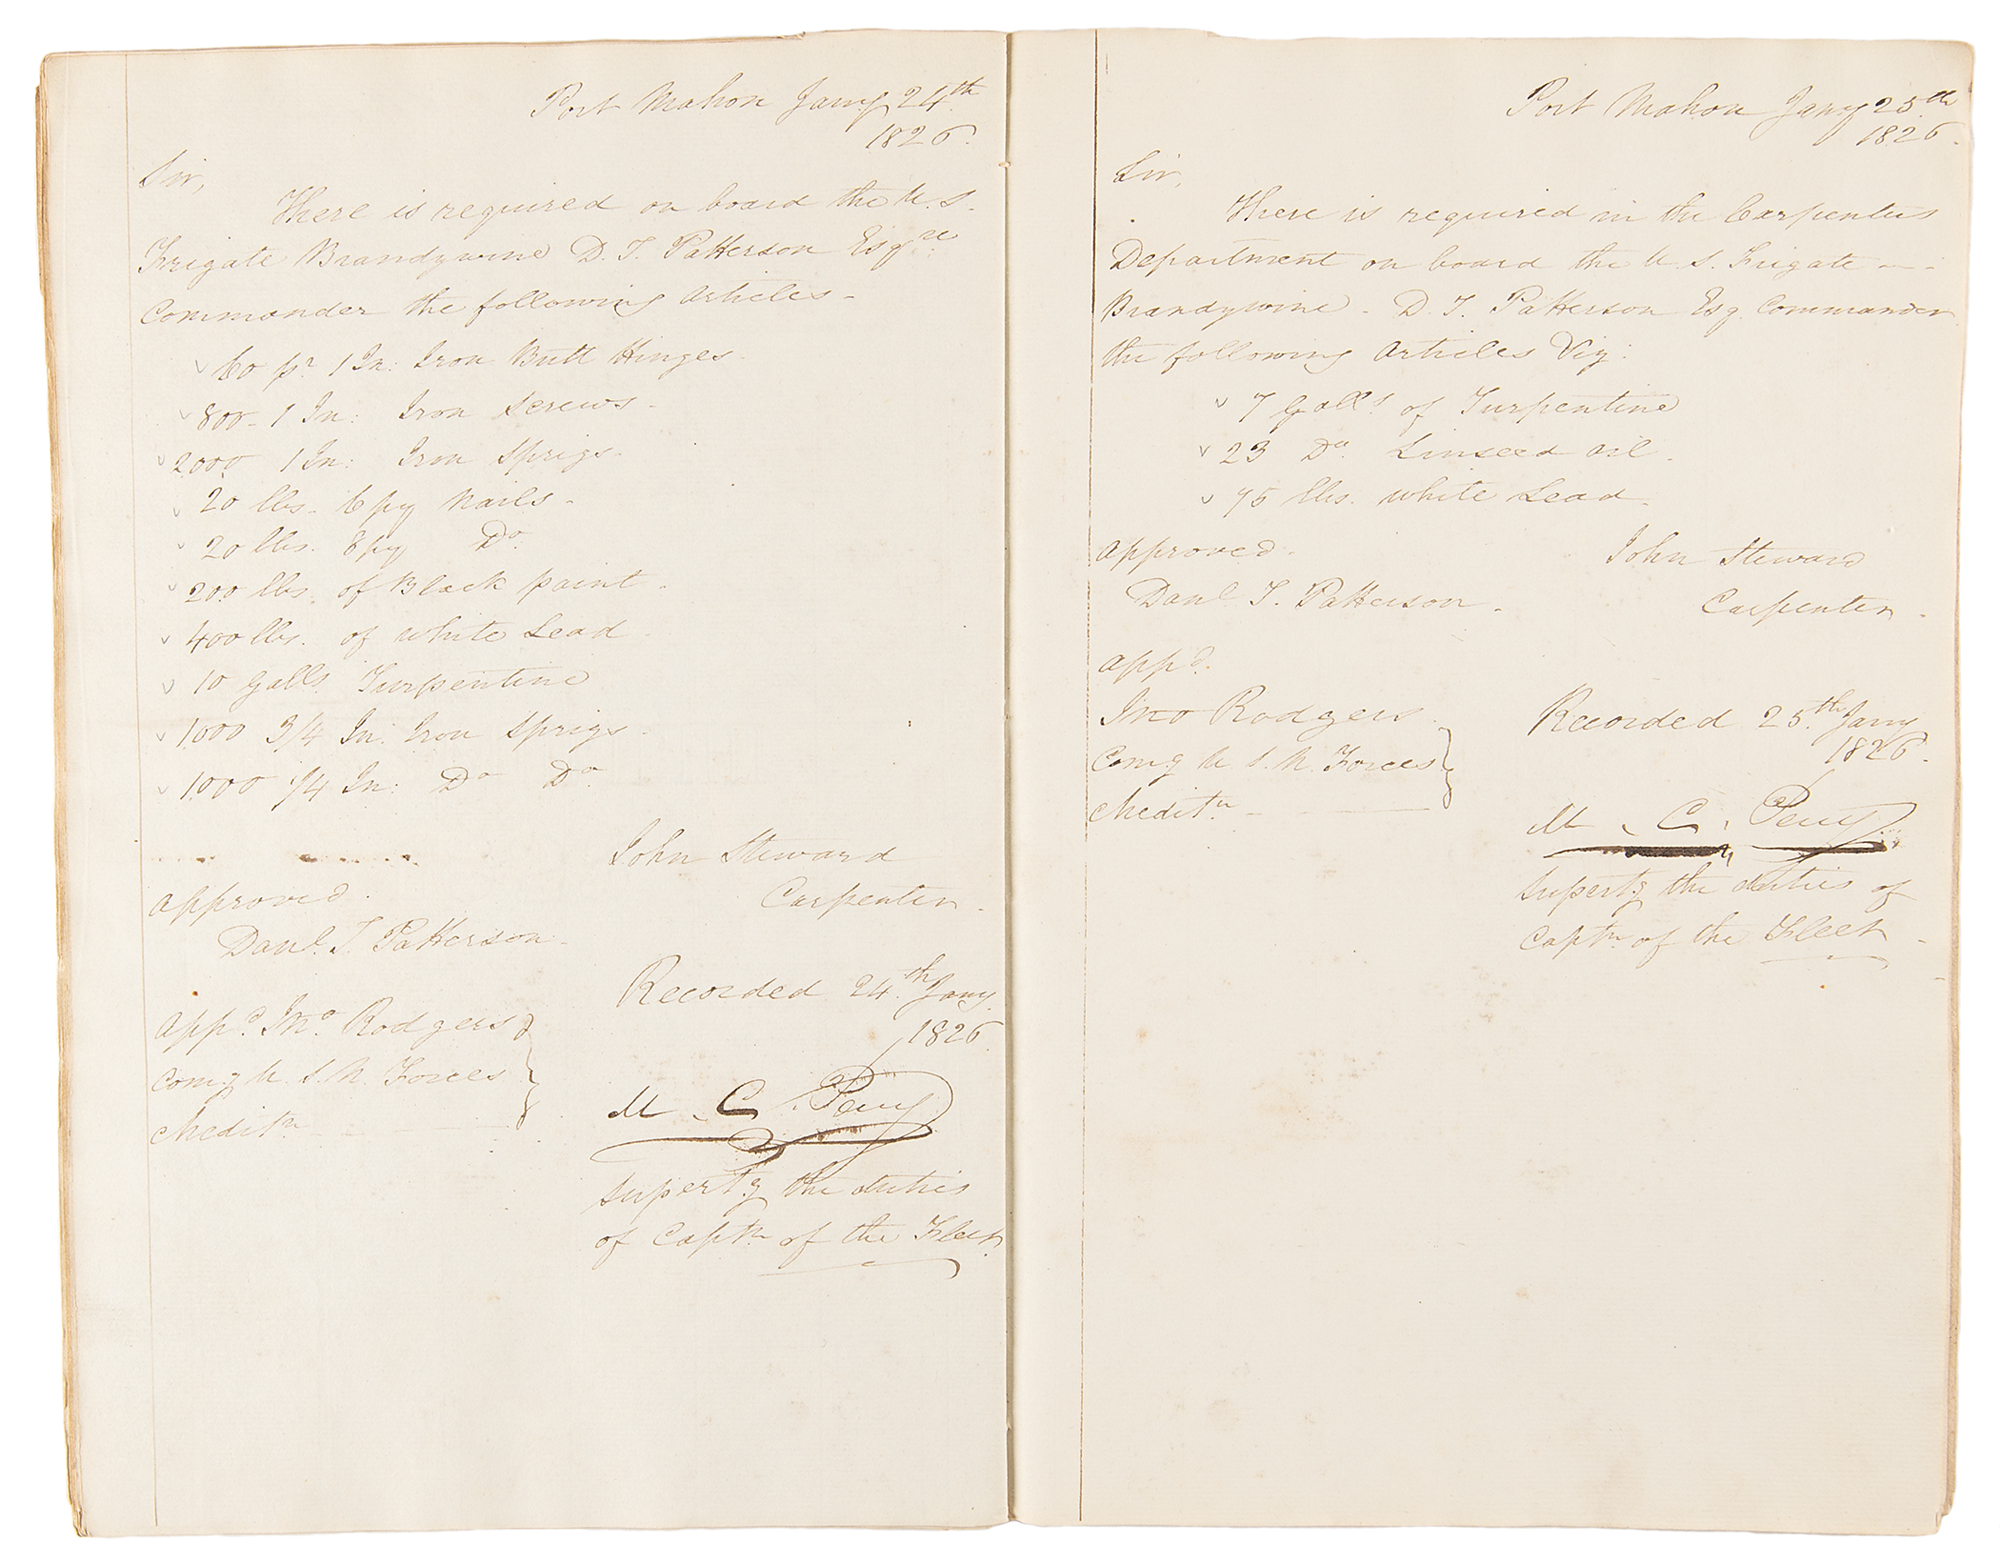 Port Mahon Jany 24th
1826.
Sir,
There is required on board the U.S.
Frigate Brandywine D. T. Patterson Esqre
Commander the following articles -
60 pr 1 In: Iron Butt Hinges -
800 - 1 In: Iron Screws -
2000 1 In: Iron Sprigs -
20 lbs. 6 py Nails -
20 lbs. 8 py Do
200 lbs. of Black paint -
400 lbs. of white Lead -
10 Galls. Turpentine
1000 3/4 In: Iron Sprigs -
1000 1/4 In: Do Do
John Steward
Carpenter -
approved -
Danl. T. Patterson -
Recorded 24th Jany
1826
appd Jno. Rodgers
Comg U. S. N. Forces
Meditn
M. C. Perry
Supertg the duties
of Captn of the Fleet
Port Mahon Jany 25th
1826.
Sir,
There is required in the Carpenters
Department on board the U. S. Frigate - -
Brandywine - D. T. Patterson Esq. Commander
the following articles Viz:
7 Galls of Turpentine
23 Do Linseed oil -
75 lbs. white Lead -
approved -
John Steward
Danl T. Patterson -
Carpenter -
appd.
Jno Rodgers
Comg U. S. N. Forces
Meditn
Recorded 25th Jany
1826.
M. C. Perry
Supertg the duties of
Captn of the Fleet -